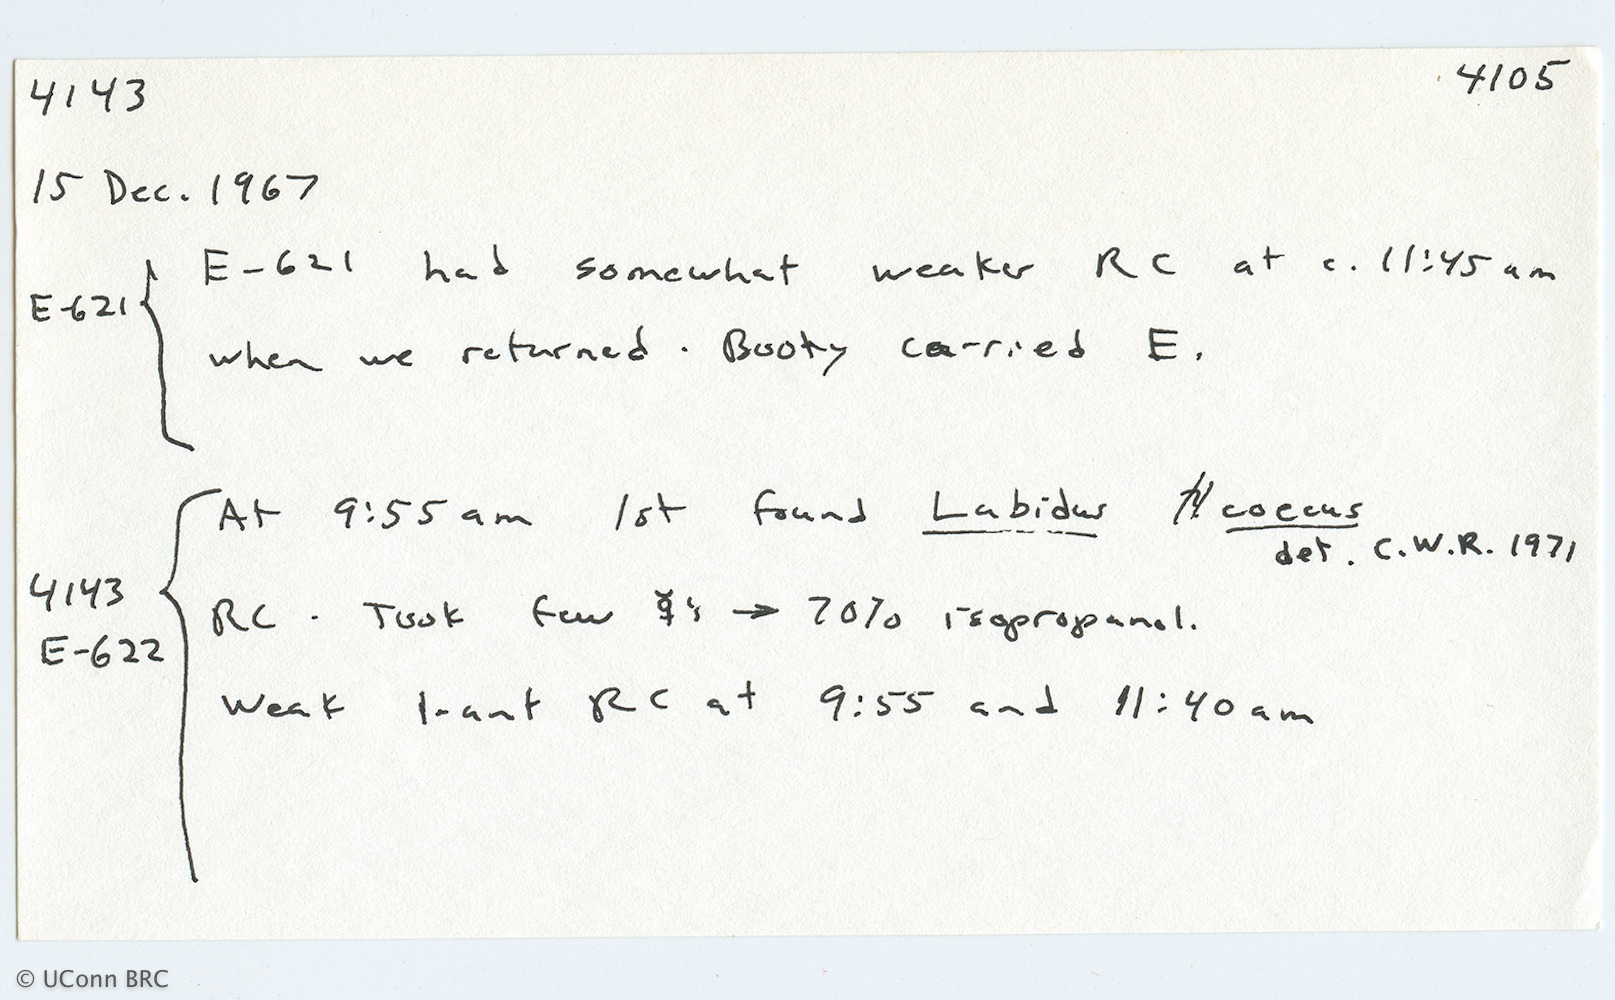 4143 4105
15 Dec. 1967
E-621 had somewhat weaker RC at c. 11:45 am
E-621
when we returned. Booty carried E.
At 9:55 am 1st found Labidus coecus
det. C.W.R. 1971
4143
RC. Took few ☿'s → 70% isopropanol.
E-622
Weak 1-ant RC at 9:55 and 11:40 am
© UConn BRC